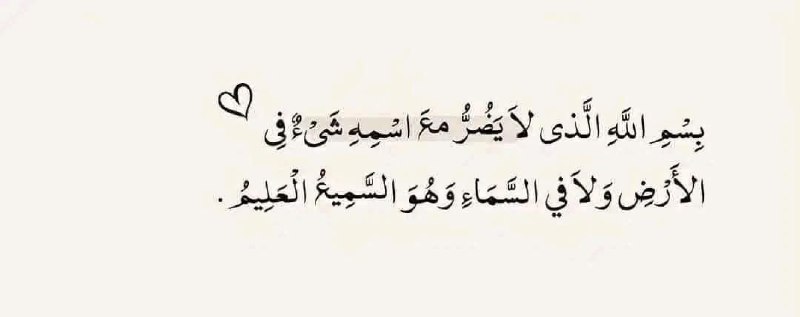 بِسْمِ اللَّهِ الَّذى لاَ يَضُرُّ مَعَ اسْمِهِ شَىْءٌ فِى
الأَرْضِ وَلاَ في السَّمَاءِ وَهُوَ السَّمِيعُ الْعَلِيمُ .